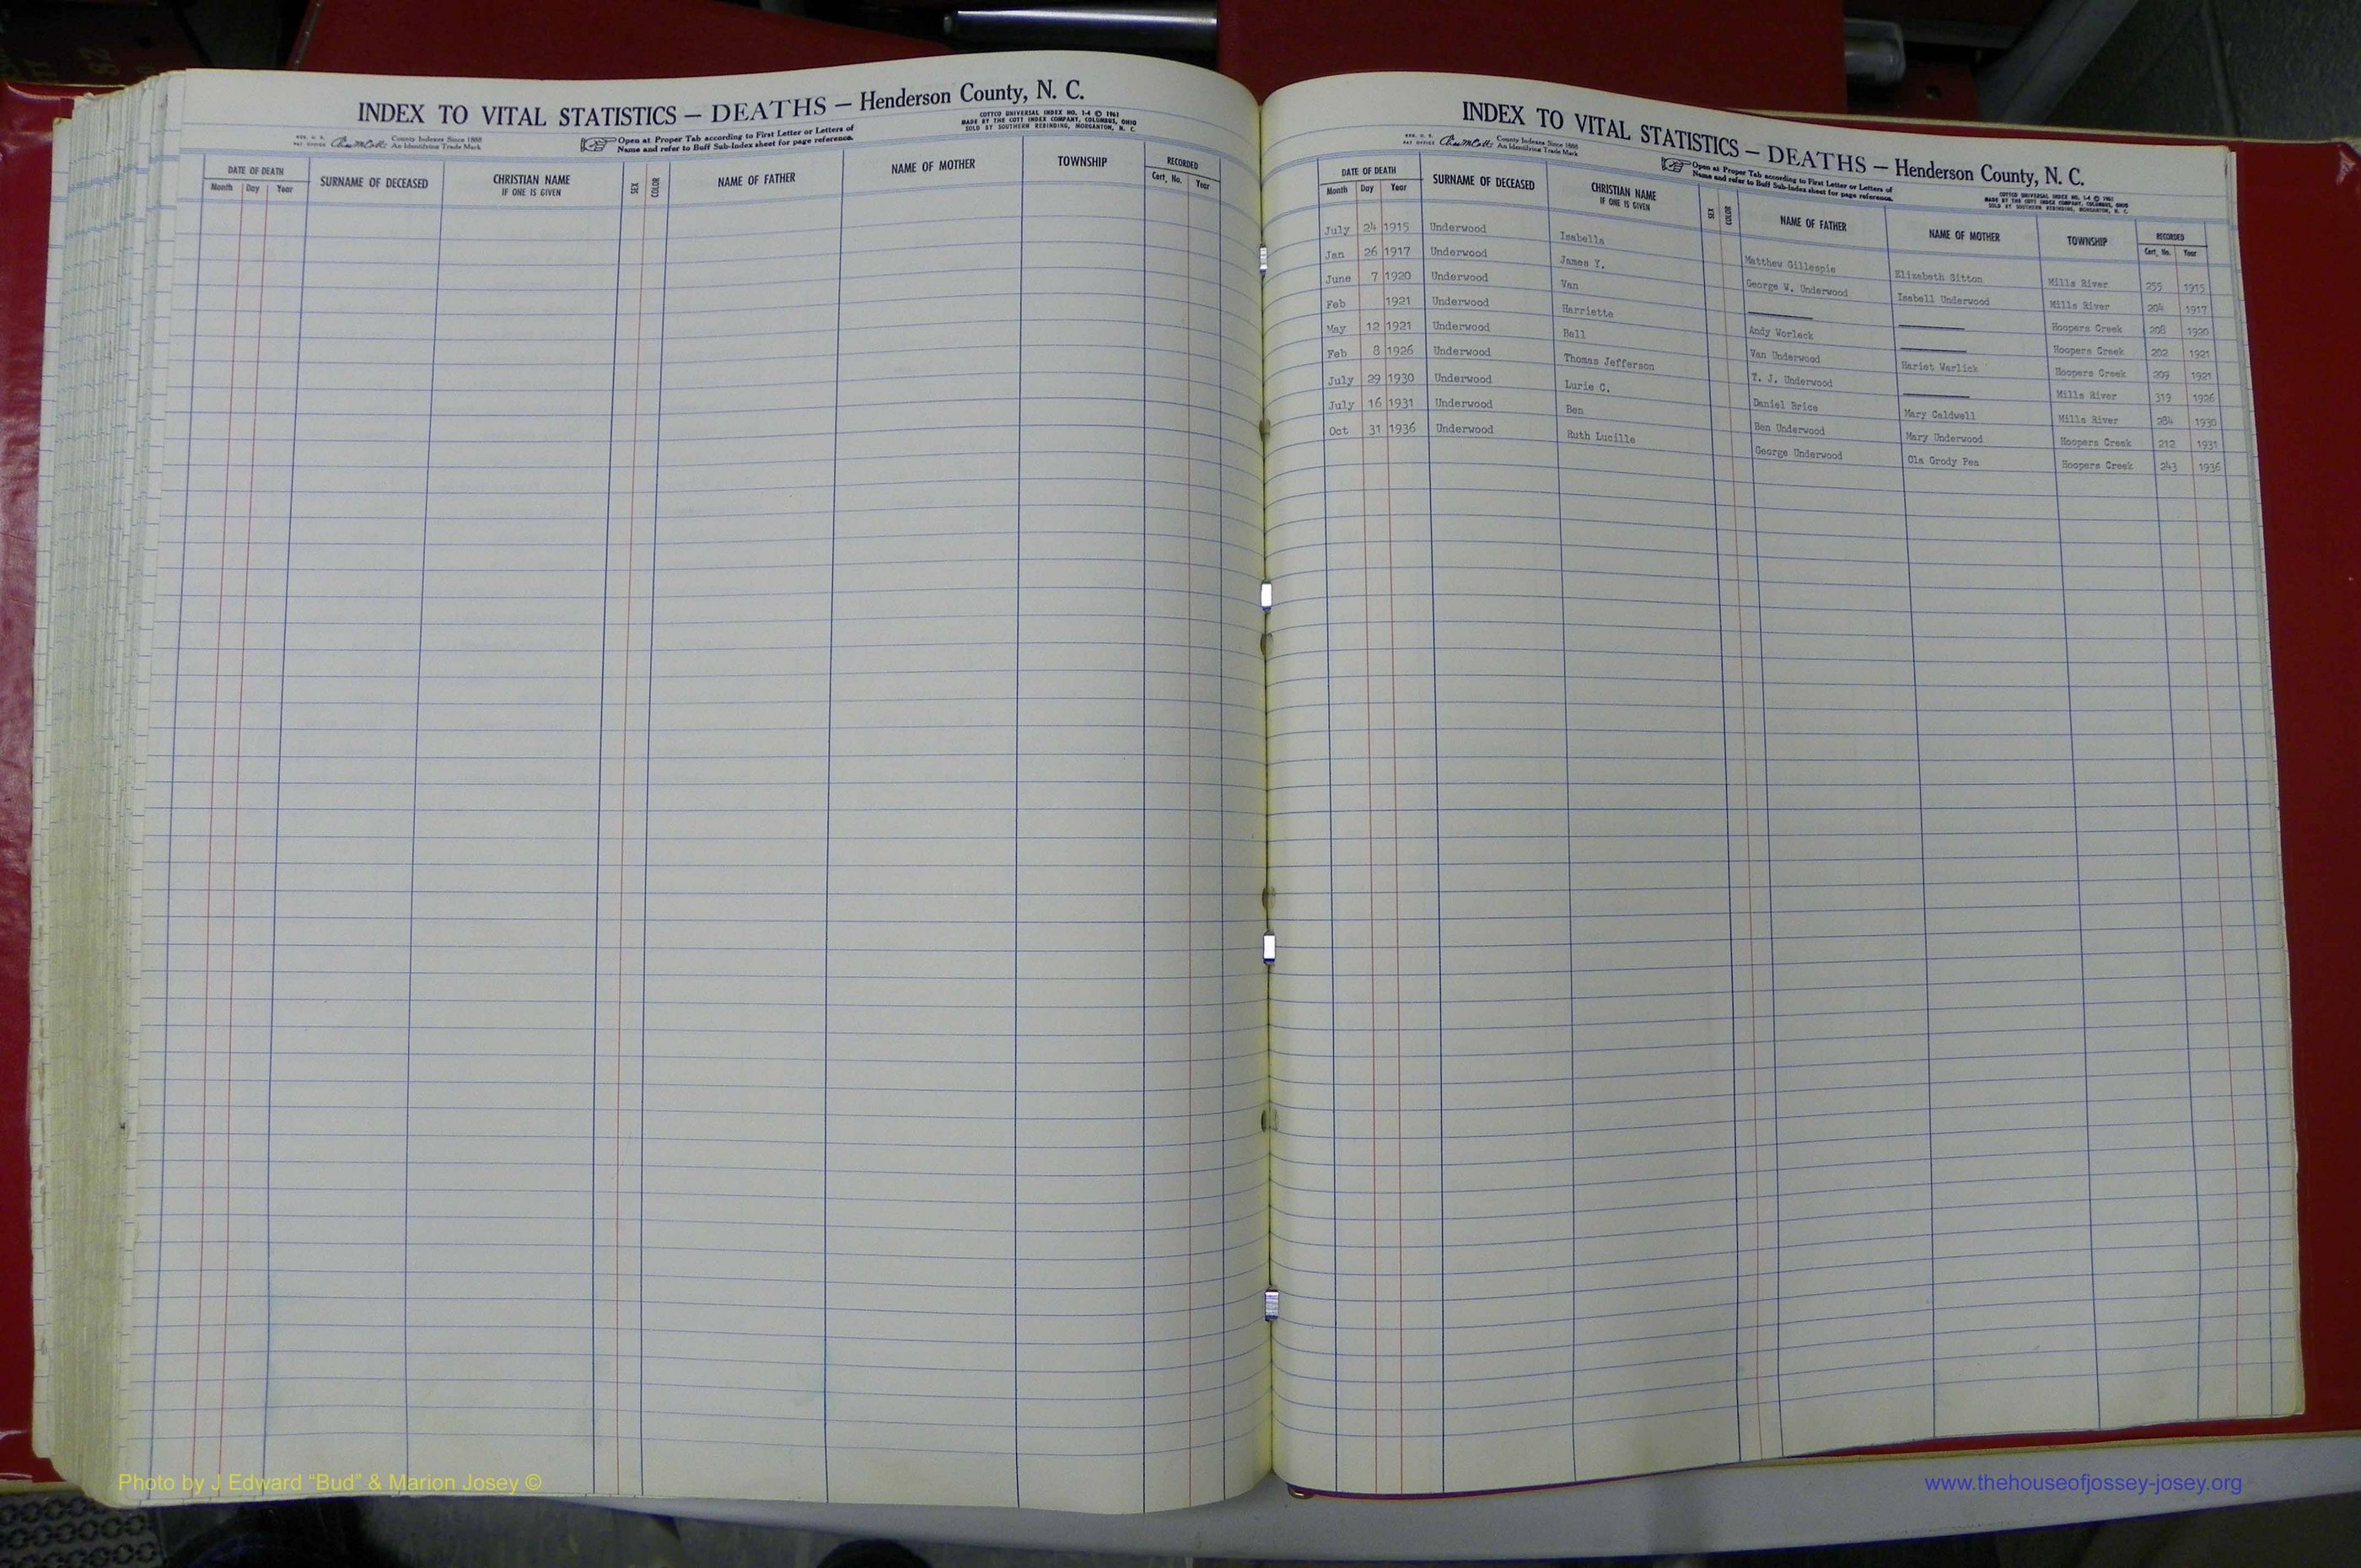 INDEX TO VITAL STATISTICS — DEATHS — Henderson County, N. C.
County Indexes Since 1888
An Identifying Trade Mark
Open at Proper Tab according to First Letter or Letters of
Name and refer to Buff Sub-Index sheet for page reference.
COTTCO UNIVERSAL INDEX NO. 1-4 © 1961
MADE BY THE COTT INDEX COMPANY, COLUMBUS, OHIO
SOLD BY SOUTHERN REBINDING, MORGANTON, N. C.
DATE OF DEATH SURNAME OF DECEASED CHRISTIAN NAME IF ONE IS GIVEN SEX COLOR NAME OF FATHER NAME OF MOTHER TOWNSHIP RECORDED
Month Day Year Cert. No. Year
INDEX TO VITAL STATISTICS — DEATHS — Henderson County, N. C.
County Indexes Since 1888
An Identifying Trade Mark
Open at Proper Tab according to First Letter or Letters of
Name and refer to Buff Sub-Index sheet for page reference.
COTTCO UNIVERSAL INDEX NO. 1-4 © 1961
MADE BY THE COTT INDEX COMPANY, COLUMBUS, OHIO
SOLD BY SOUTHERN REBINDING, MORGANTON, N. C.
DATE OF DEATH SURNAME OF DECEASED CHRISTIAN NAME IF ONE IS GIVEN SEX COLOR NAME OF FATHER NAME OF MOTHER TOWNSHIP RECORDED
Month Day Year Cert. No. Year
July 24 1915 Underwood Isabella Matthew Gillespie Elizabeth Sitton Mills River 255 1915
Jan 26 1917 Underwood James Y. George W. Underwood Isabell Underwood Mills River 204 1917
June 7 1920 Underwood Van Hoopers Creek 208 1920
Feb 1921 Underwood Harriette Andy Worleck Hoopers Creek 202 1921
May 12 1921 Underwood Bell Van Underwood Hariet Warlick Hoopers Creek 209 1921
Feb 8 1926 Underwood Thomas Jefferson T. J. Underwood Mills River 319 1926
July 29 1930 Underwood Lurie C. Daniel Brice Mary Caldwell Mills River 284 1930
July 16 1931 Underwood Ben Ben Underwood Mary Underwood Hoopers Creek 212 1931
Oct 31 1936 Underwood Ruth Lucille George Underwood Ola Grody Pea Hoopers Creek 243 1936
Photo by J Edward “Bud” & Marion Josey ©
www.thehouseofjossey-josey.org